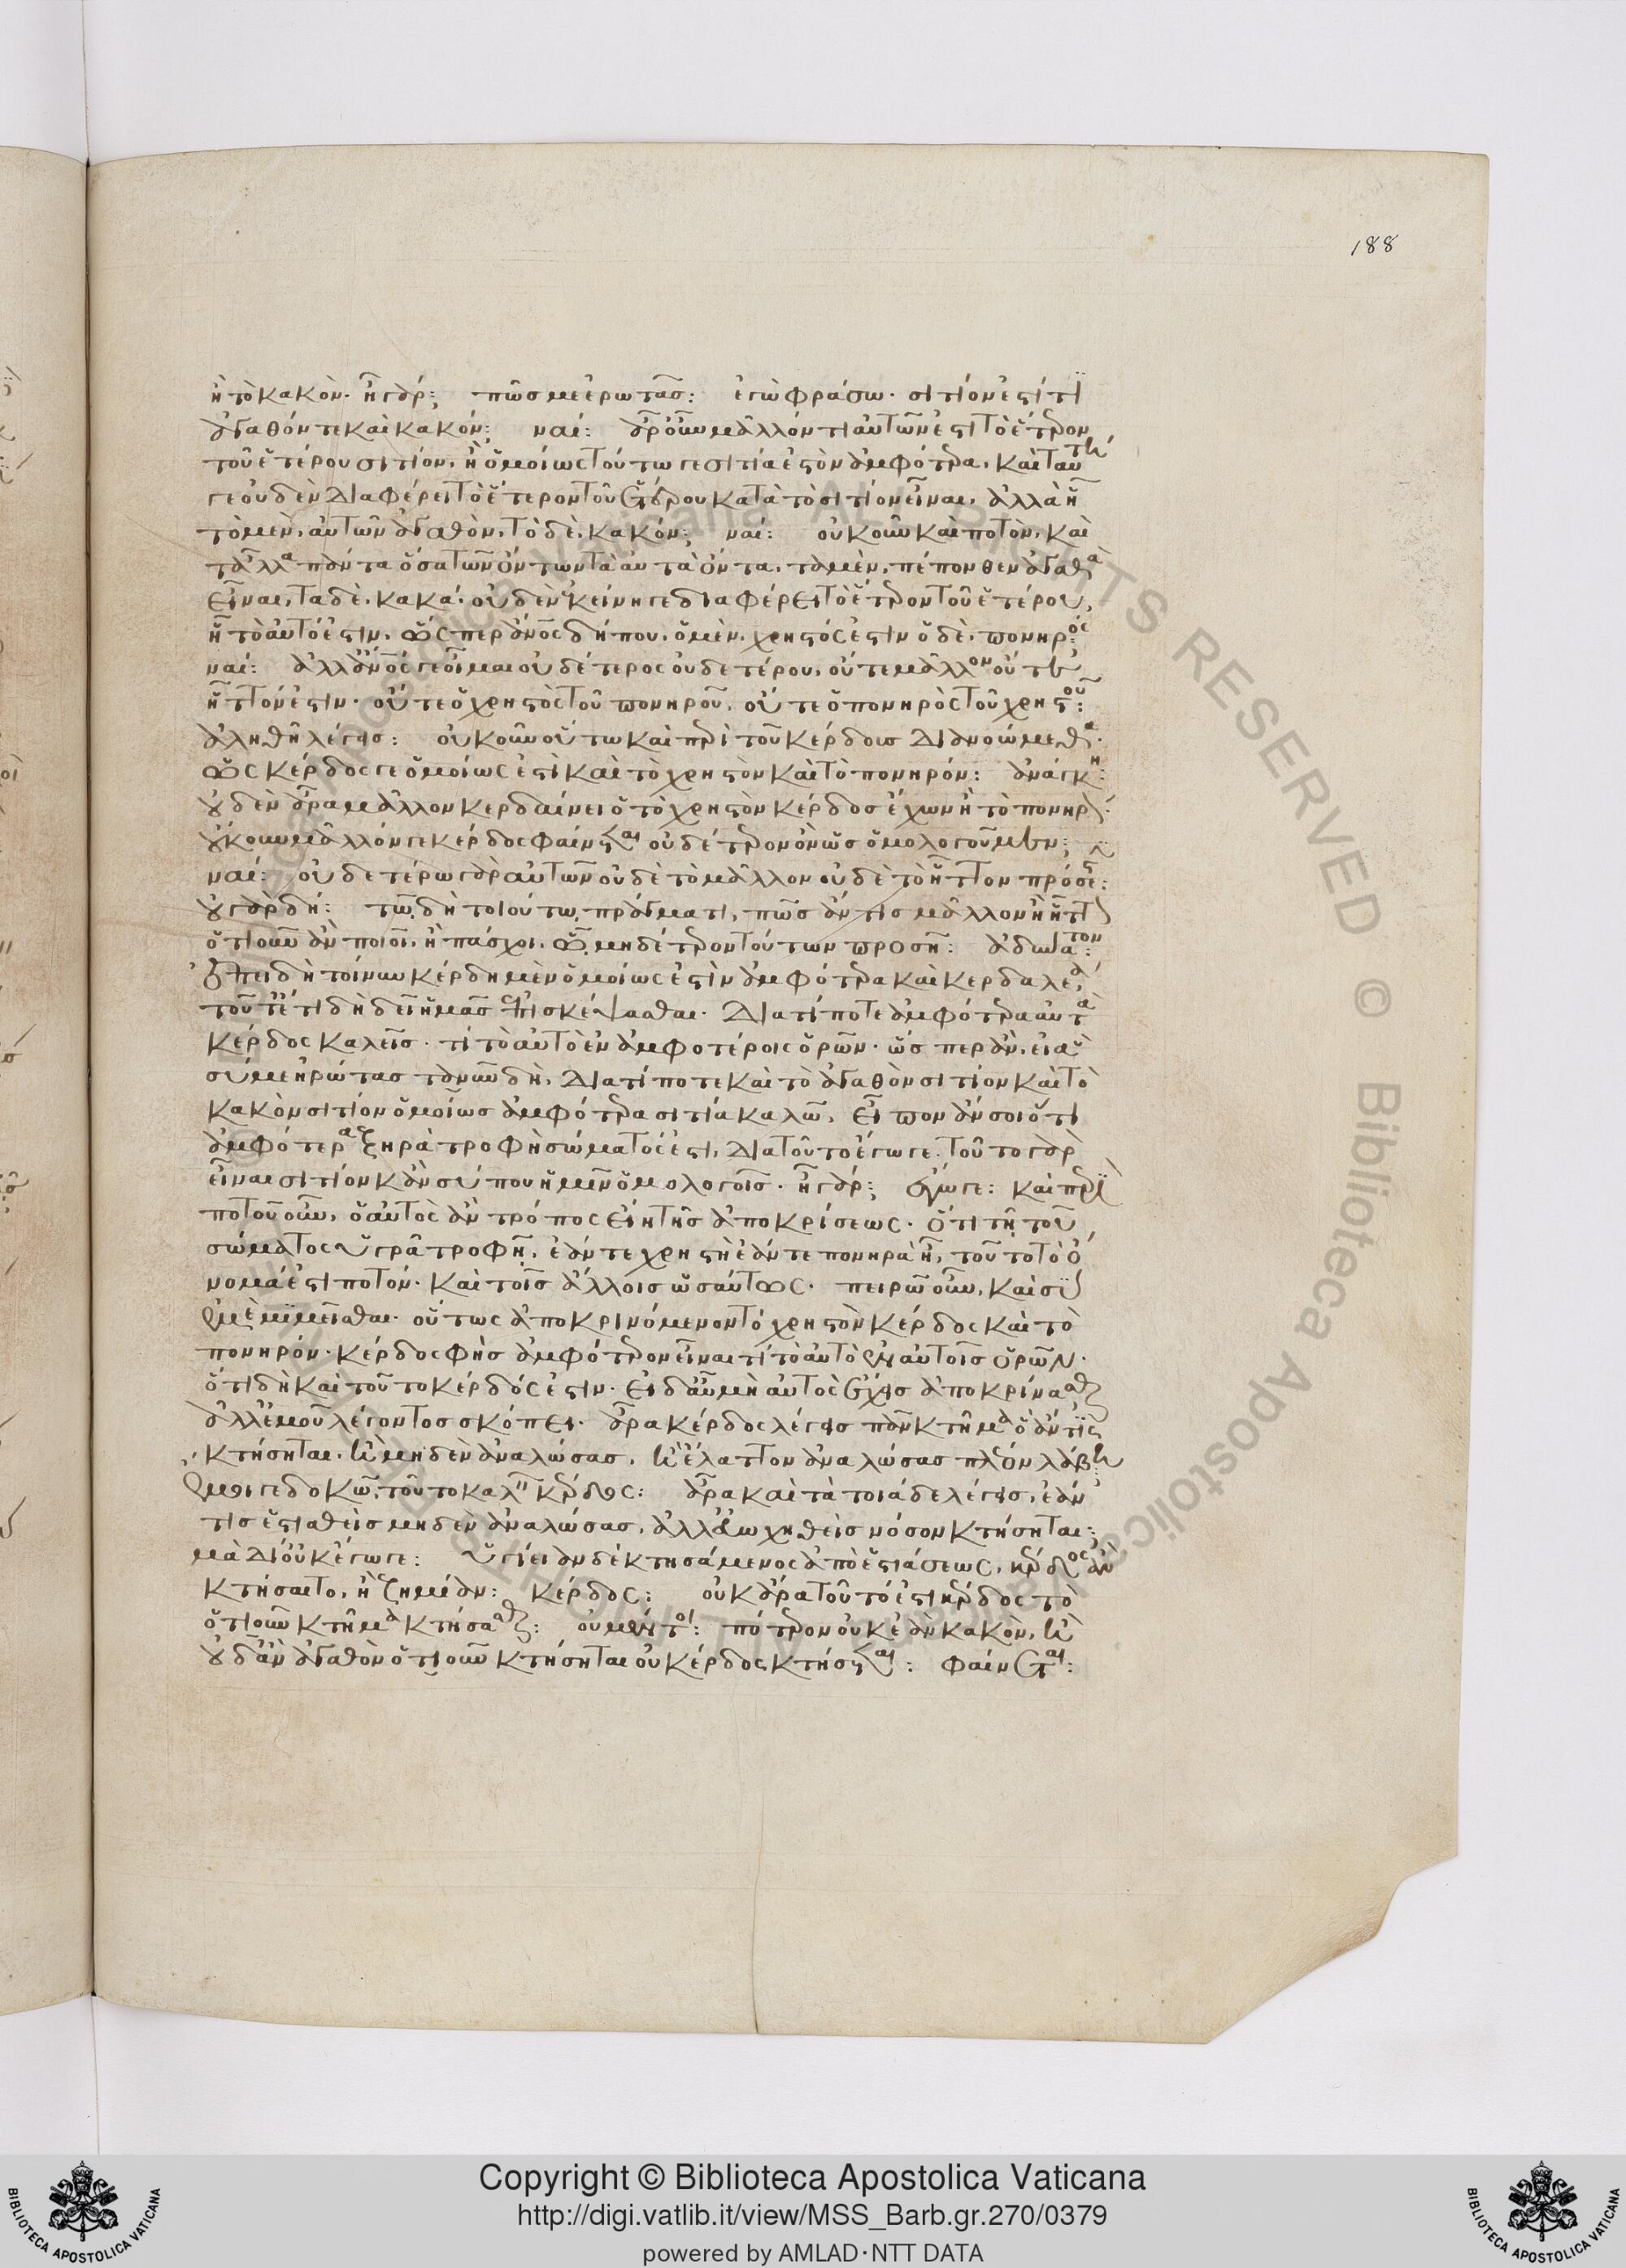 188
ἢ τὸ κακὸν· ἦ γάρ; πῶς με ἐρωτᾶς: ἐγὼ φράσω· σιτίον ἐστί τι
ἀγαθόν τε καὶ κακόν; ναί: ἆρ' οὖν μᾶλλόν τι αὐτῶν ἐστι τὸ ἕτερον
τοῦ ἑτέρου σιτίον, ἢ ὁμοίως τούτω γε σιτία ἐστὸν ἀμφότερα, καὶ ταύτη
γε οὐδὲν διαφέρει τὸ ἕτερον τοῦ ἑτέρου κατὰ τὸ σιτίον εἶναι, ἀλλὰ ἢ
τὸ μὲν, αὐτῶν ἀγαθὸν, τὸ δὲ, κακόν; ναί: οὐκοῦν καὶ ποτὸν, καὶ
τἆλλα πάντα ὅσα τῶν ὄντων τὰ αὐτὰ ὄντα, τὰ μὲν, πέπονθεν ἀγαθὰ
εἶναι, τὰ δὲ, κακά· οὐδὲν ἐκείνη γε διαφέρει τὸ ἕτερον τοῦ ἑτέρου,
ἧ τὸ αὐτό ἐστιν, ὥσπερ ἄνθρωπος δήπου, ὁ μὲν, χρηστός ἐστιν ὁ δὲ, πονηρός:
ναί: ἀλλ' ἄνθρωπός γε οἶμαι οὐδέτερος οὐδετέρου, οὔτε μᾶλλον οὔτε
ἧττόν ἐστιν· οὔτε ὁ χρηστὸς τοῦ πονηροῦ, οὔτε ὁ πονηρὸς τοῦ χρηστοῦ:
ἀληθῆ λέγεις: οὐκοῦν οὕτω καὶ περὶ τοῦ κέρδους διανοώμεθα·
ὡς κέρδος γε ὁμοίως ἐστὶ καὶ τὸ χρηστὸν καὶ τὸ πονηρόν: ἀνάγκη:
οὐδὲν ἄρα μᾶλλον κερδαίνει ὁ τὸ χρηστὸν κέρδος ἔχων ἢ τὸ πονηρόν·
οὔκουν μᾶλλόν γε κέρδος φαίνεται οὐδέτερον ὂν ὡς ὁμολογοῦμεν;
ναί: οὐδετέρω γὰρ αὐτῶν οὐδὲ τὸ μᾶλλον οὐδὲ τὸ ἧττον πρόσεστι:
οὐ γὰρ δή: τῶ δὴ τοιούτω πράγματι, πῶς ἄν τις μᾶλλον ἢ ἧττον
ὁτιοῦν ἂν ποιοῖ, ἢ πάσχοι, ᾧ μηδέτερον τούτων προσῆ: ἀδύνατον:
ἐπειδὴ τοίνυν κέρδη μὲν ὁμοίως ἐστὶν ἀμφότερα καὶ κερδαλέα,
τουτὶ ἔτι δὴ δεῖ ἡμᾶς ἐπισκέψασθαι· διὰ τί ποτε ἀμφότερα αὐτὰ
κέρδος καλεῖς· τί τὸ αὐτὸ ἐν ἀμφοτέροις ὁρῶν· ὥσπερ ἂν, εἰ
σύ με ἠρώτας τὰ νῦν δὴ, διὰ τί ποτε καὶ τὸ ἀγαθὸν σιτίον καὶ τὸ
κακὸν σιτίον ὁμοίως ἀμφότερα σιτία καλῶ, εἶπον ἄν σοι ὅτι
ἀμφότερα ξηρὰ τροφὴ σώματός ἐστι, διὰ τοῦτο ἔγωγε· τοῦτο γὰρ
εἶναι σιτίον κἂν σύ που ἡμῖν ὁμολογοῖς· ἦ γάρ; ἔγωγε: καὶ περὶ
ποτοῦ οὖν, ὁ αὐτὸς ἂν τρόπος εἴη τῆς ἀποκρίσεως· ὅτι τῆ τοῦ
σώματος ὑγρᾶ τροφῆ, ἐάν τε χρηστὴ ἐάν τε πονηρὰ ἦ, τοῦτο τὸ ὄ
νομά ἐστι ποτόν· καὶ τοῖς ἄλλοις ὡσαύτως· πειρῶ οὖν, καὶ σὺ
ἐμὲ μιμεῖσθαι· οὕτως ἀποκρινόμενον τό χρηστὸν κέρδος καὶ τὸ
πονηρόν· κέρδος φὴς ἀμφότερον εἶναι τί τὸ αὐτὸ ἐν αὐτοῖς ὁρῶν·
ὅτι δὴ καὶ τοῦτο κέρδός ἐστιν· εἰ δ' αὖ μὴ αὐτὸς ἔχεις ἀποκρίνασθαι
ἀλλ' ἐμοῦ λέγοντος σκόπει· ἆρα κέρδος λέγεις πᾶν κτῆμα ὃ ἄν τις
κτήσηται, ἢ μηδὲν ἀναλώσας, ἢ ἔλαττον ἀναλώσας πλέον λάβη;
ἔμοιγε δοκῶ, τοῦτο καλεῖν κέρδος: ἆρα καὶ τὰ τοιάδε λέγεις, ἐάν
τις ἑστιαθεὶς μηδὲν ἀναλώσας, ἀλλ' εὐωχηθεὶς νόσον κτήσηται;
μὰ Δί' οὐκ ἔγωγε: ὑγίειαν δὲ κτησάμενος ἀπὸ ἑστιάσεως, κέρδος ἂν
κτήσαιτο, ἢ ζημίαν: κέρδος: οὐκ ἄρα τοῦτό ἐστι κέρδος τὸ
ὁτιοῦν κτῆμα κτήσασθαι: οὐ μέντοι: πότερον οὐκ ἐὰν κακὸν, ἢ
οὐδ' ἂν ἀγαθὸν ὁτιοῦν κτήσηται οὐ κέρδος κτήσεται: φαίνεται:
Copyright © Biblioteca Apostolica Vaticana
http://digi.vatlib.it/view/MSS_Barb.gr.270/0379
powered by AMLAD·NTT DATA